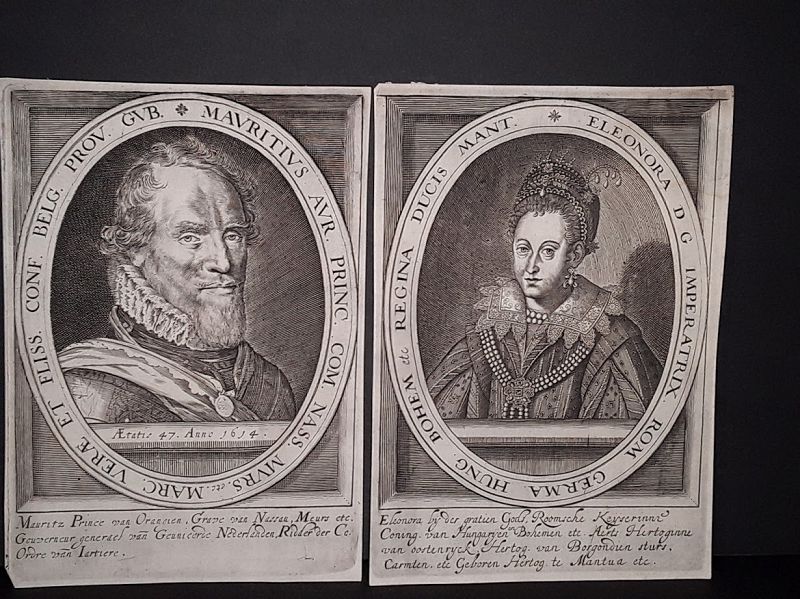 MAVRITIVS AVR. PRINC. COM NASS. MVRS. etc. MARC. VERÆ ET FLISS. CONF. BELG. PROV. GVB.
Ætatis 47. Anno 1614.
Mauritz Prince van Orangien, Grave van Nassau, Meurs etc.
Gouverneur generael van Geunieerde Nederlanden, Ridder der Co
Ordre van Iartiere.
ELEONORA D G IMPERATRIX ROM GERMA HUNG. BOHEM etc REGINA DUCIS MANT.
Eleonora by der gratien Gods, Roomsche Keyserinne
Coning. van Hungaryen Bohemen etc. Aerts Hertoginne
van oostenryck Hertog. van Borgondien sturs.
Carnten. etc Geboren Hertog. te Mantua etc.